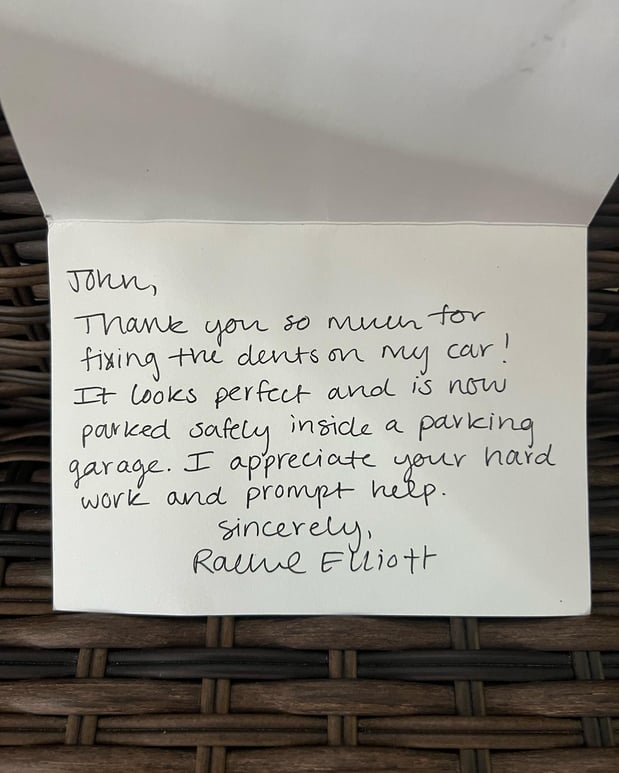 John,
Thank you so much for
fixing the dents on my car!
It looks perfect and is now
parked safely inside a parking
garage. I appreciate your hard
work and prompt help.
sincerely,
Elliott